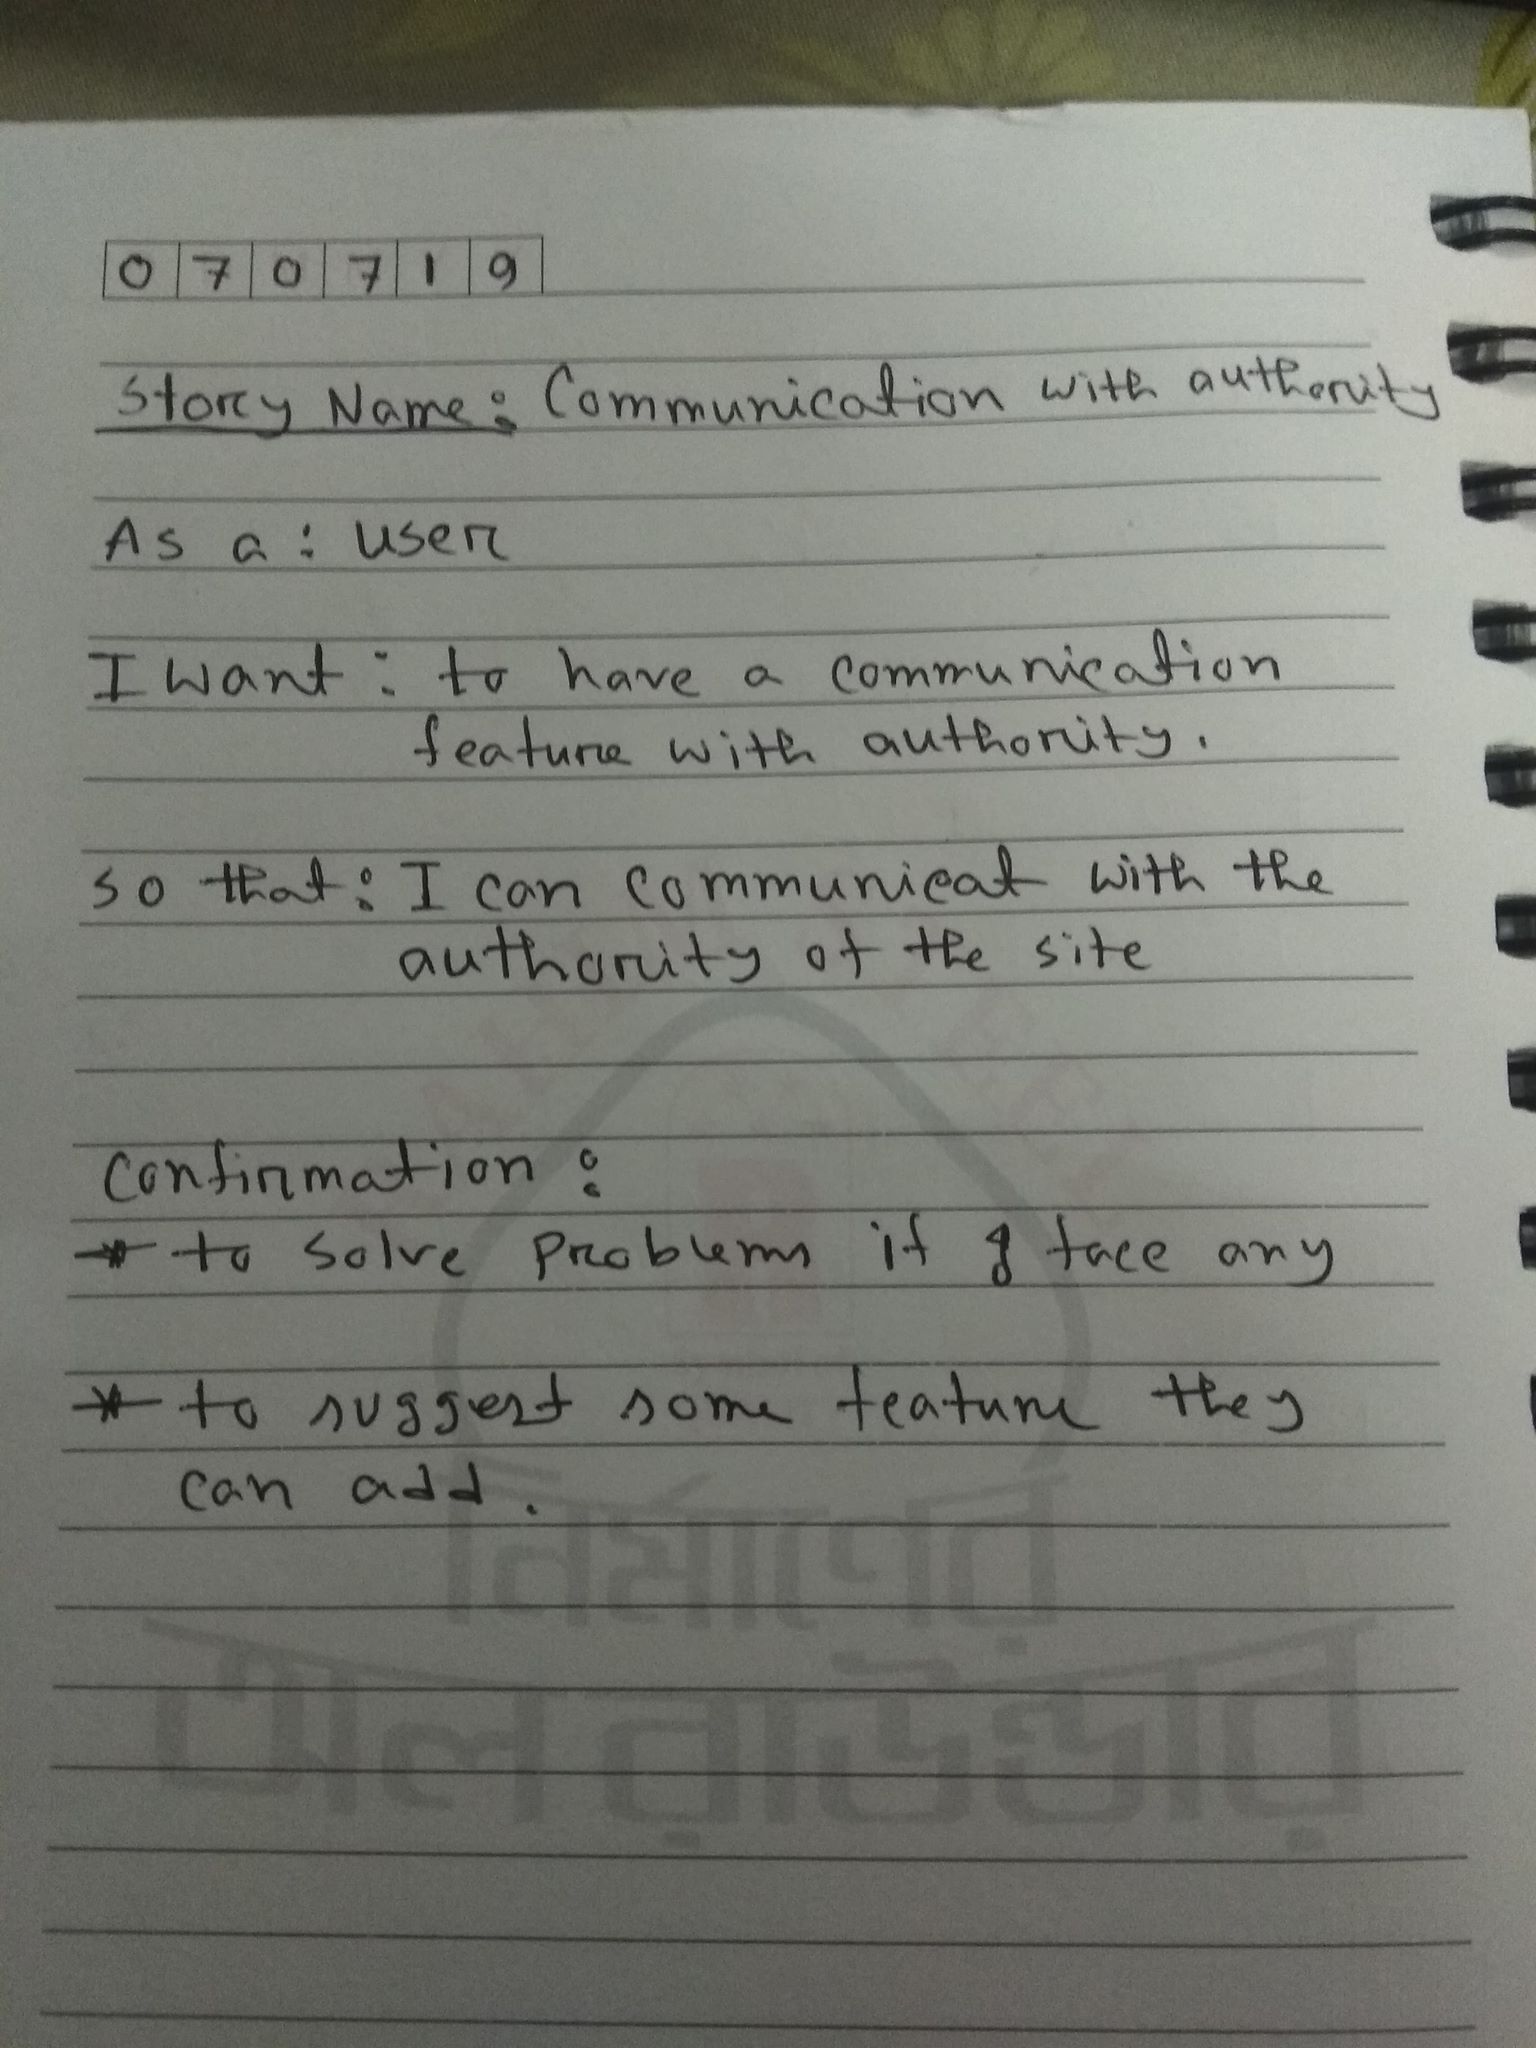 070719
Story Name: Communication with authority
As a: user
I want: to have a communication
feature with authority.
so that: I can communicat with the
authority of the site
Confirmation:
* to solve problems if I face any
* to suggest some feature they
can add.